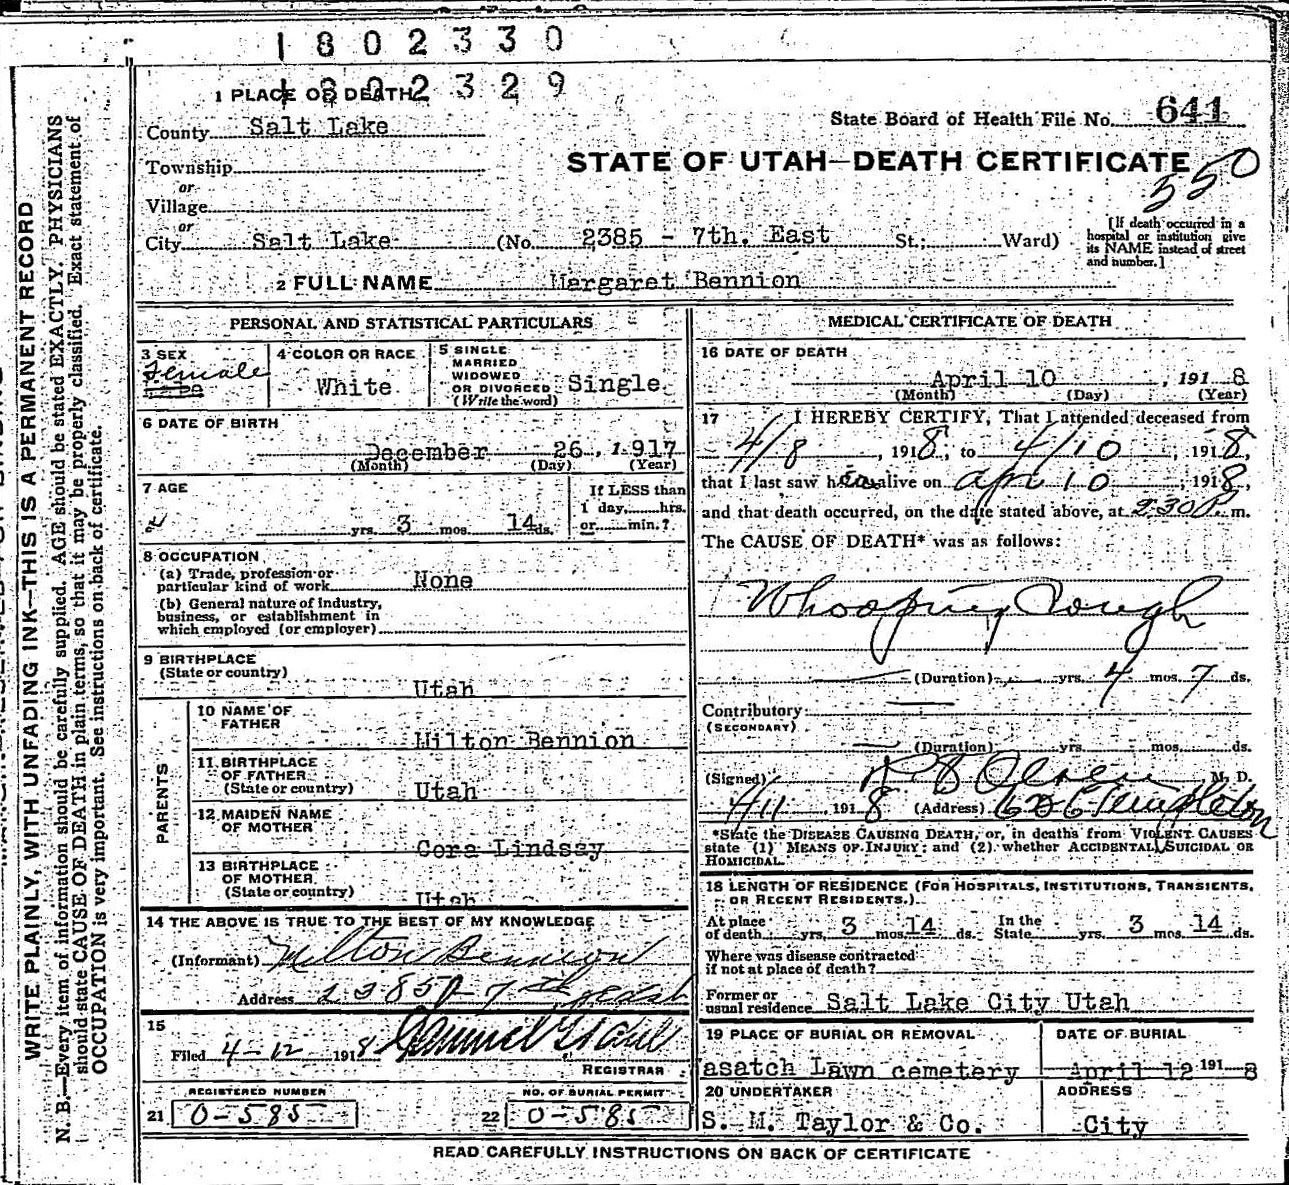 1802330
1802329
1 PLACE OF DEATH
County Salt Lake
State Board of Health File No. 641
Township
or
STATE OF UTAH—DEATH CERTIFICATE
550
Village
or
City Salt Lake (No. 2385 - 7th. East St.; Ward)
[If death occurred in a hospital or institution give its NAME instead of street and number.]
2 FULL NAME Margaret Bennion
PERSONAL AND STATISTICAL PARTICULARS
3 SEX Female
4 COLOR OR RACE White
5 SINGLE MARRIED WIDOWED OR DIVORCED (Write the word) Single
6 DATE OF BIRTH
December 26, 1917
(Month) (Day) (Year)
7 AGE
yrs. 3 mos. 14 ds.
If LESS than 1 day, hrs. or min.?
8 OCCUPATION
(a) Trade, profession or particular kind of work None
(b) General nature of industry, business, or establishment in which employed (or employer)
9 BIRTHPLACE
(State or country) Utah
PARENTS
10 NAME OF FATHER Milton Bennion
11 BIRTHPLACE OF FATHER (State or country) Utah
12 MAIDEN NAME OF MOTHER Cora Lindsay
13 BIRTHPLACE OF MOTHER (State or country) Utah
14 THE ABOVE IS TRUE TO THE BEST OF MY KNOWLEDGE
(Informant) Milton Bennion
Address 2385 7th East
15
Filed 4-12 1918
REGISTRAR
REGISTERED NUMBER
21 0-585
NO. OF BURIAL PERMIT
22 0-585
MEDICAL CERTIFICATE OF DEATH
16 DATE OF DEATH
April 10, 1918
(Month) (Day) (Year)
17 I HEREBY CERTIFY, That I attended deceased from
4/8, 1918, to 4/10, 1918,
that I last saw her alive on Apr 10, 1918,
and that death occurred, on the date stated above, at 2:30 P. m.
The CAUSE OF DEATH* was as follows:
Whooping Cough
(Duration) yrs. 4 mos. 7 ds.
Contributory
(SECONDARY)
(Duration) yrs. mos. ds.
(Signed) Olsen M. D.
4/11 1918 (Address) 626 Templeton
*State the DISEASE CAUSING DEATH, or, in deaths from VIOLENT CAUSES
state (1) MEANS OF INJURY; and (2) whether ACCIDENTAL, SUICIDAL OR
HOMICIDAL.
18 LENGTH OF RESIDENCE (FOR HOSPITALS, INSTITUTIONS, TRANSIENTS,
OR RECENT RESIDENTS.)
At place of death yrs. 3 mos. 14 ds. In the State yrs. 3 mos. 14 ds.
Where was disease contracted
if not at place of death?
Former or
usual residence Salt Lake City Utah
19 PLACE OF BURIAL OR REMOVAL
asatch Lawn cemetery
DATE OF BURIAL
April 12 1918
20 UNDERTAKER
S. M. Taylor & Co.
ADDRESS
City
READ CAREFULLY INSTRUCTIONS ON BACK OF CERTIFICATE
WRITE PLAINLY, WITH UNFADING INK—THIS IS A PERMANENT RECORD
N. B.—Every item of information should be carefully supplied. AGE should be stated EXACTLY. PHYSICIANS
should state CAUSE OF DEATH in plain terms, so that it may be properly classified. Exact statement of
OCCUPATION is very important. See instructions on back of certificate.